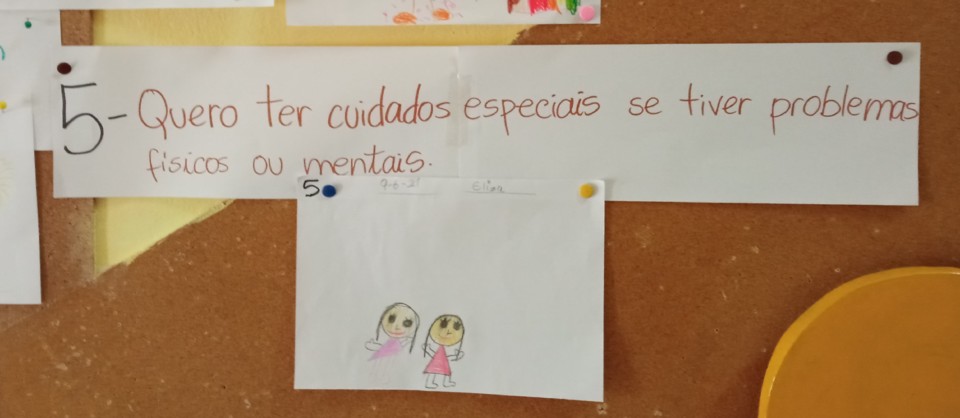 5- Quero ter cuidados especiais se tiver problemas
físicos ou mentais.
5